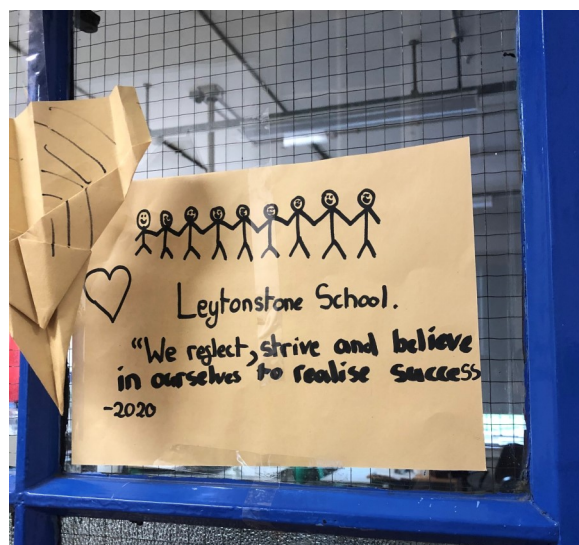 Leytonstone School.
"We reflect, strive and believe
in ourselves to realise success
-2020